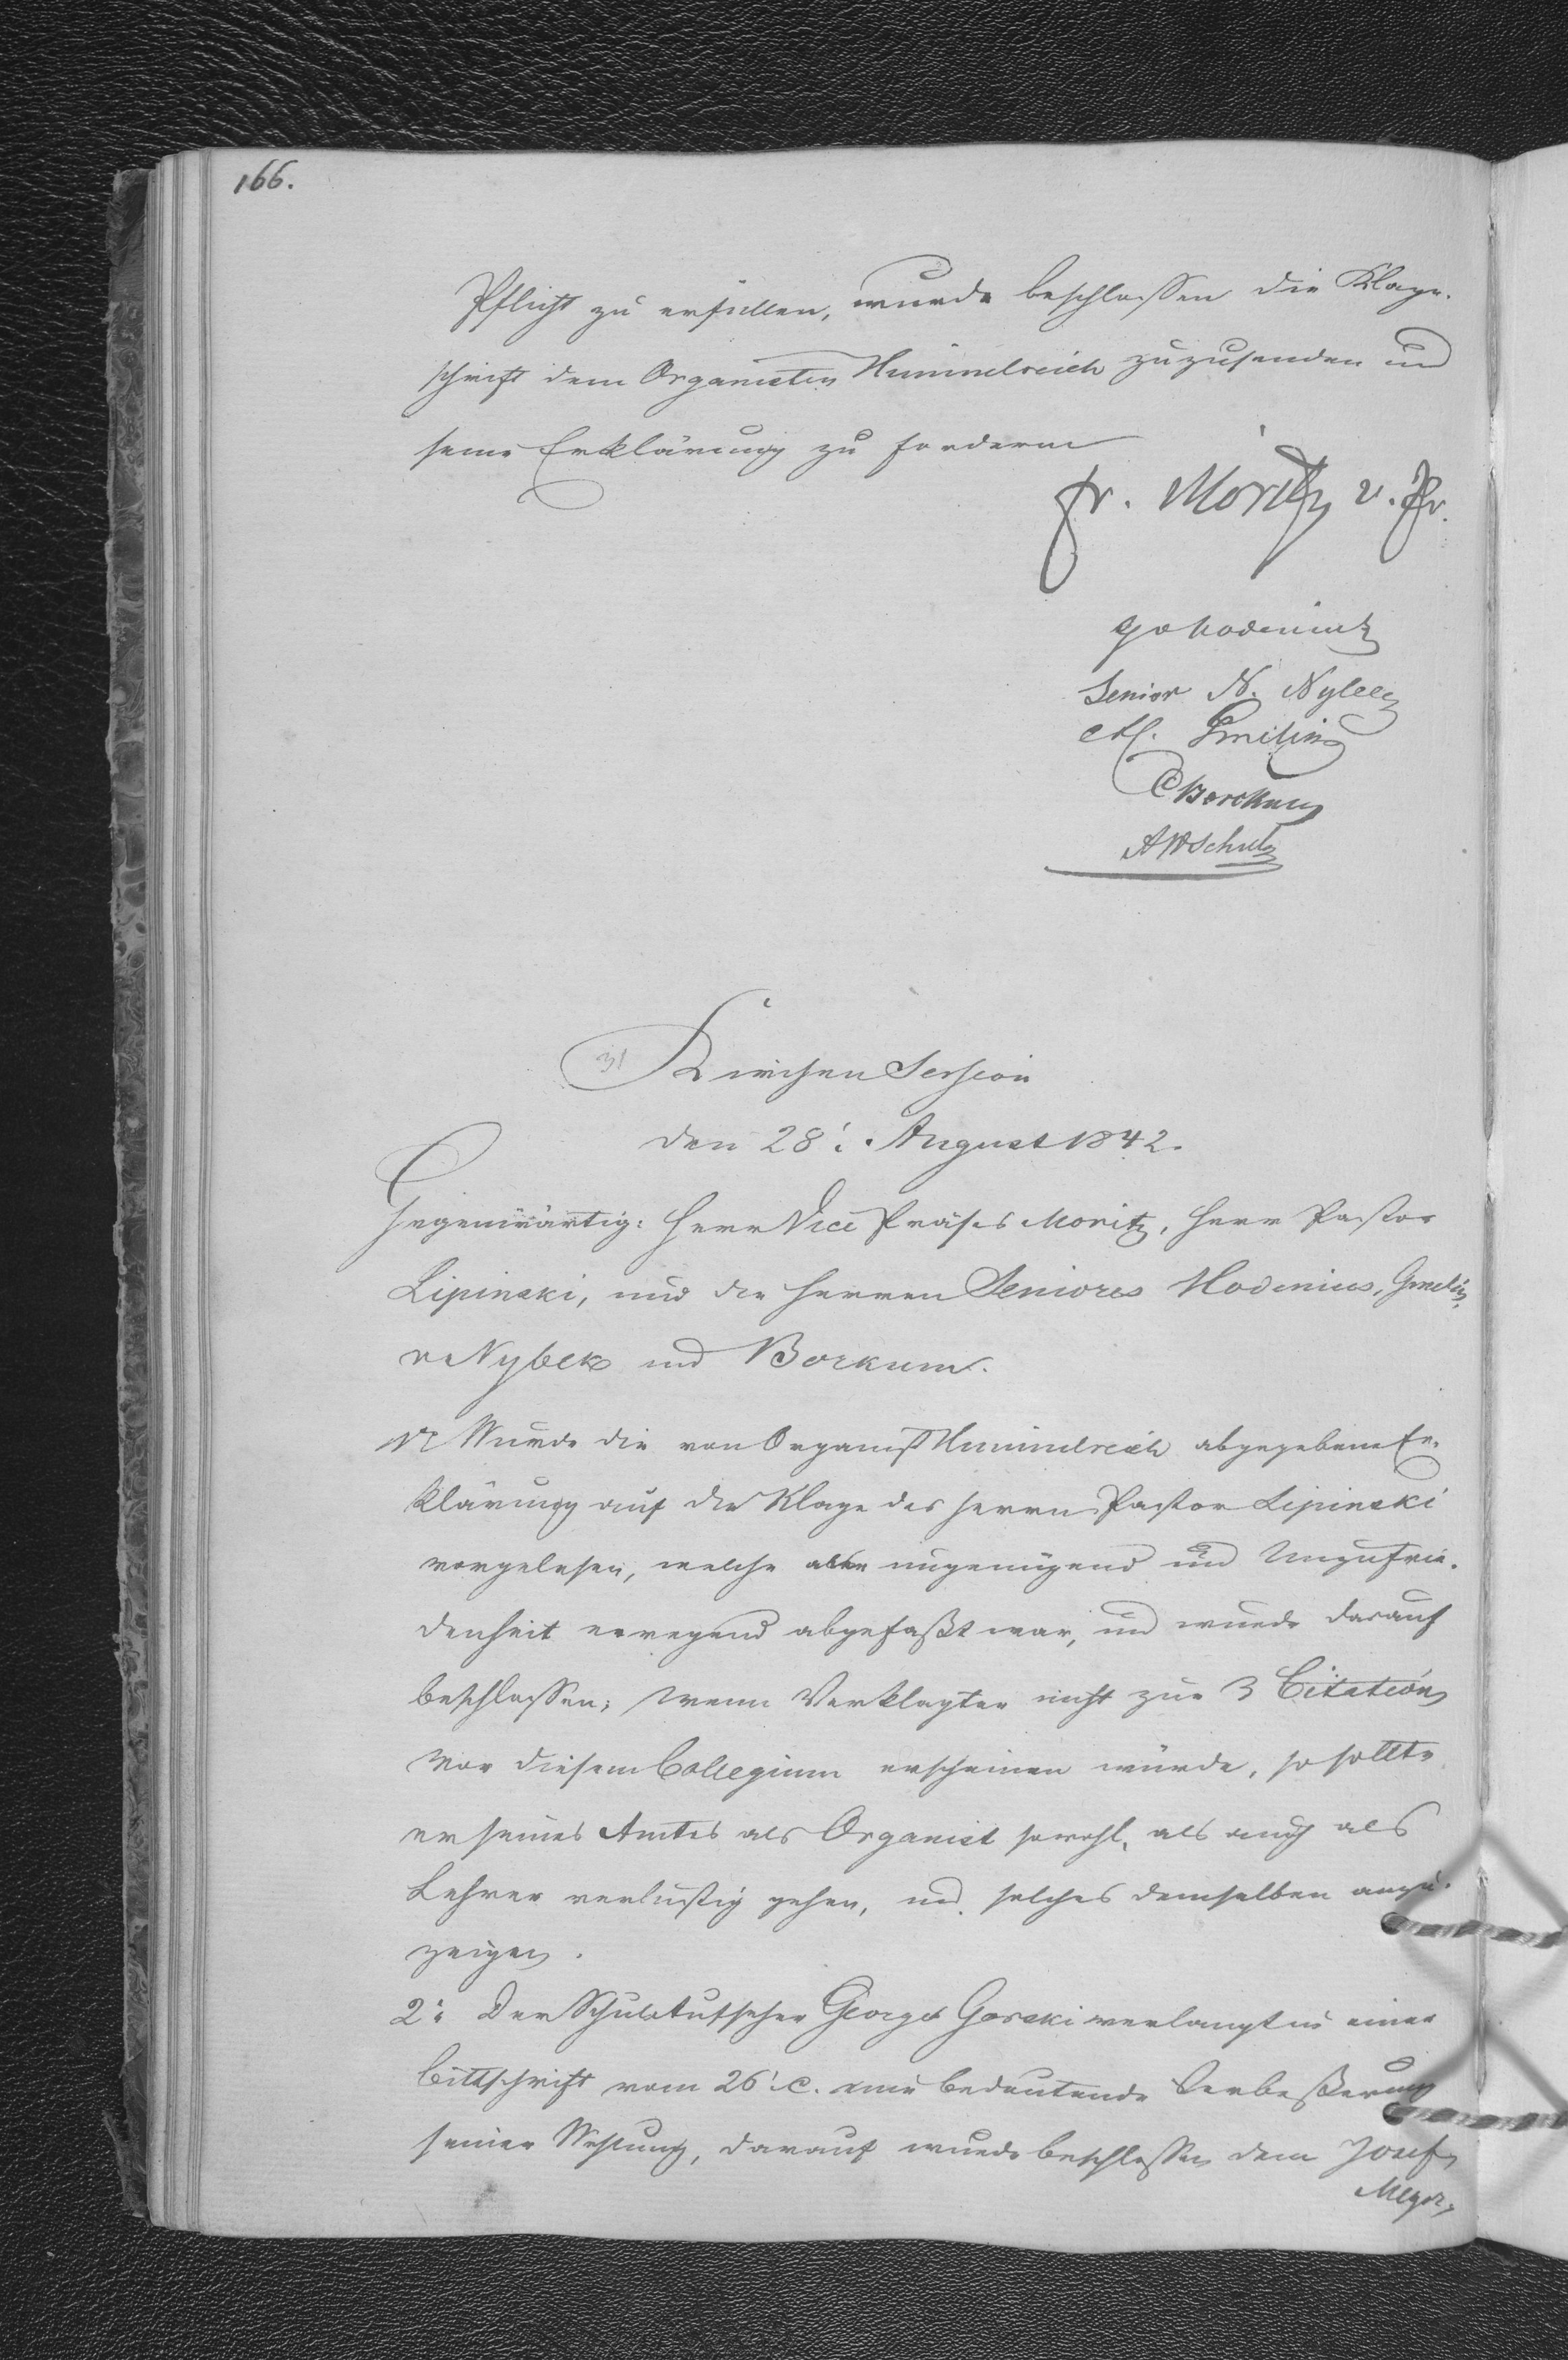 166.
Pflicht zu erfüllen, wurde beschlossen die Klage-
schrift dem Organisten Himmelreich zuzusenden und
seine Erklärung zu fordern
Fr. Moritz v. Pr.
Hodenius
Senior N. Nybek
Gmelin
C Borckum
A W Schulz
31
Kirchen Session
den 28'. August 1842.
Gegenwärtig: Herr Vice Präses Moritz, Herr Pastor
Lipinski, und die Herren Seniores Hodenius, Gmelin,
v Nybek und Borkum.
1. Wurde die von Organist Himmelreich abgegebene Er-
klärung auf die Klage des Herrn Pastor Lipinski
vorgelesen, welche aber ungenügend und Unzufrie-
denheit erregend abgefaßt war, und wurde darauf
beschlossen; wenn Verklagter nicht zur 3 Citation
vor diesem Collegium erscheinen würde, so sollte
er seines Amtes als Organist sowohl, als auch als
Lehrer verlustig gehen, und solches demselben anzu-
zeigen.
2. Der Schulaufseher George Gorski verlangt in einer
Bittschrift vom 26'. C. eine bedeutende Verbeßerung
seiner Wohnung, darauf wurde beschlossen dem Josef
Meyer,